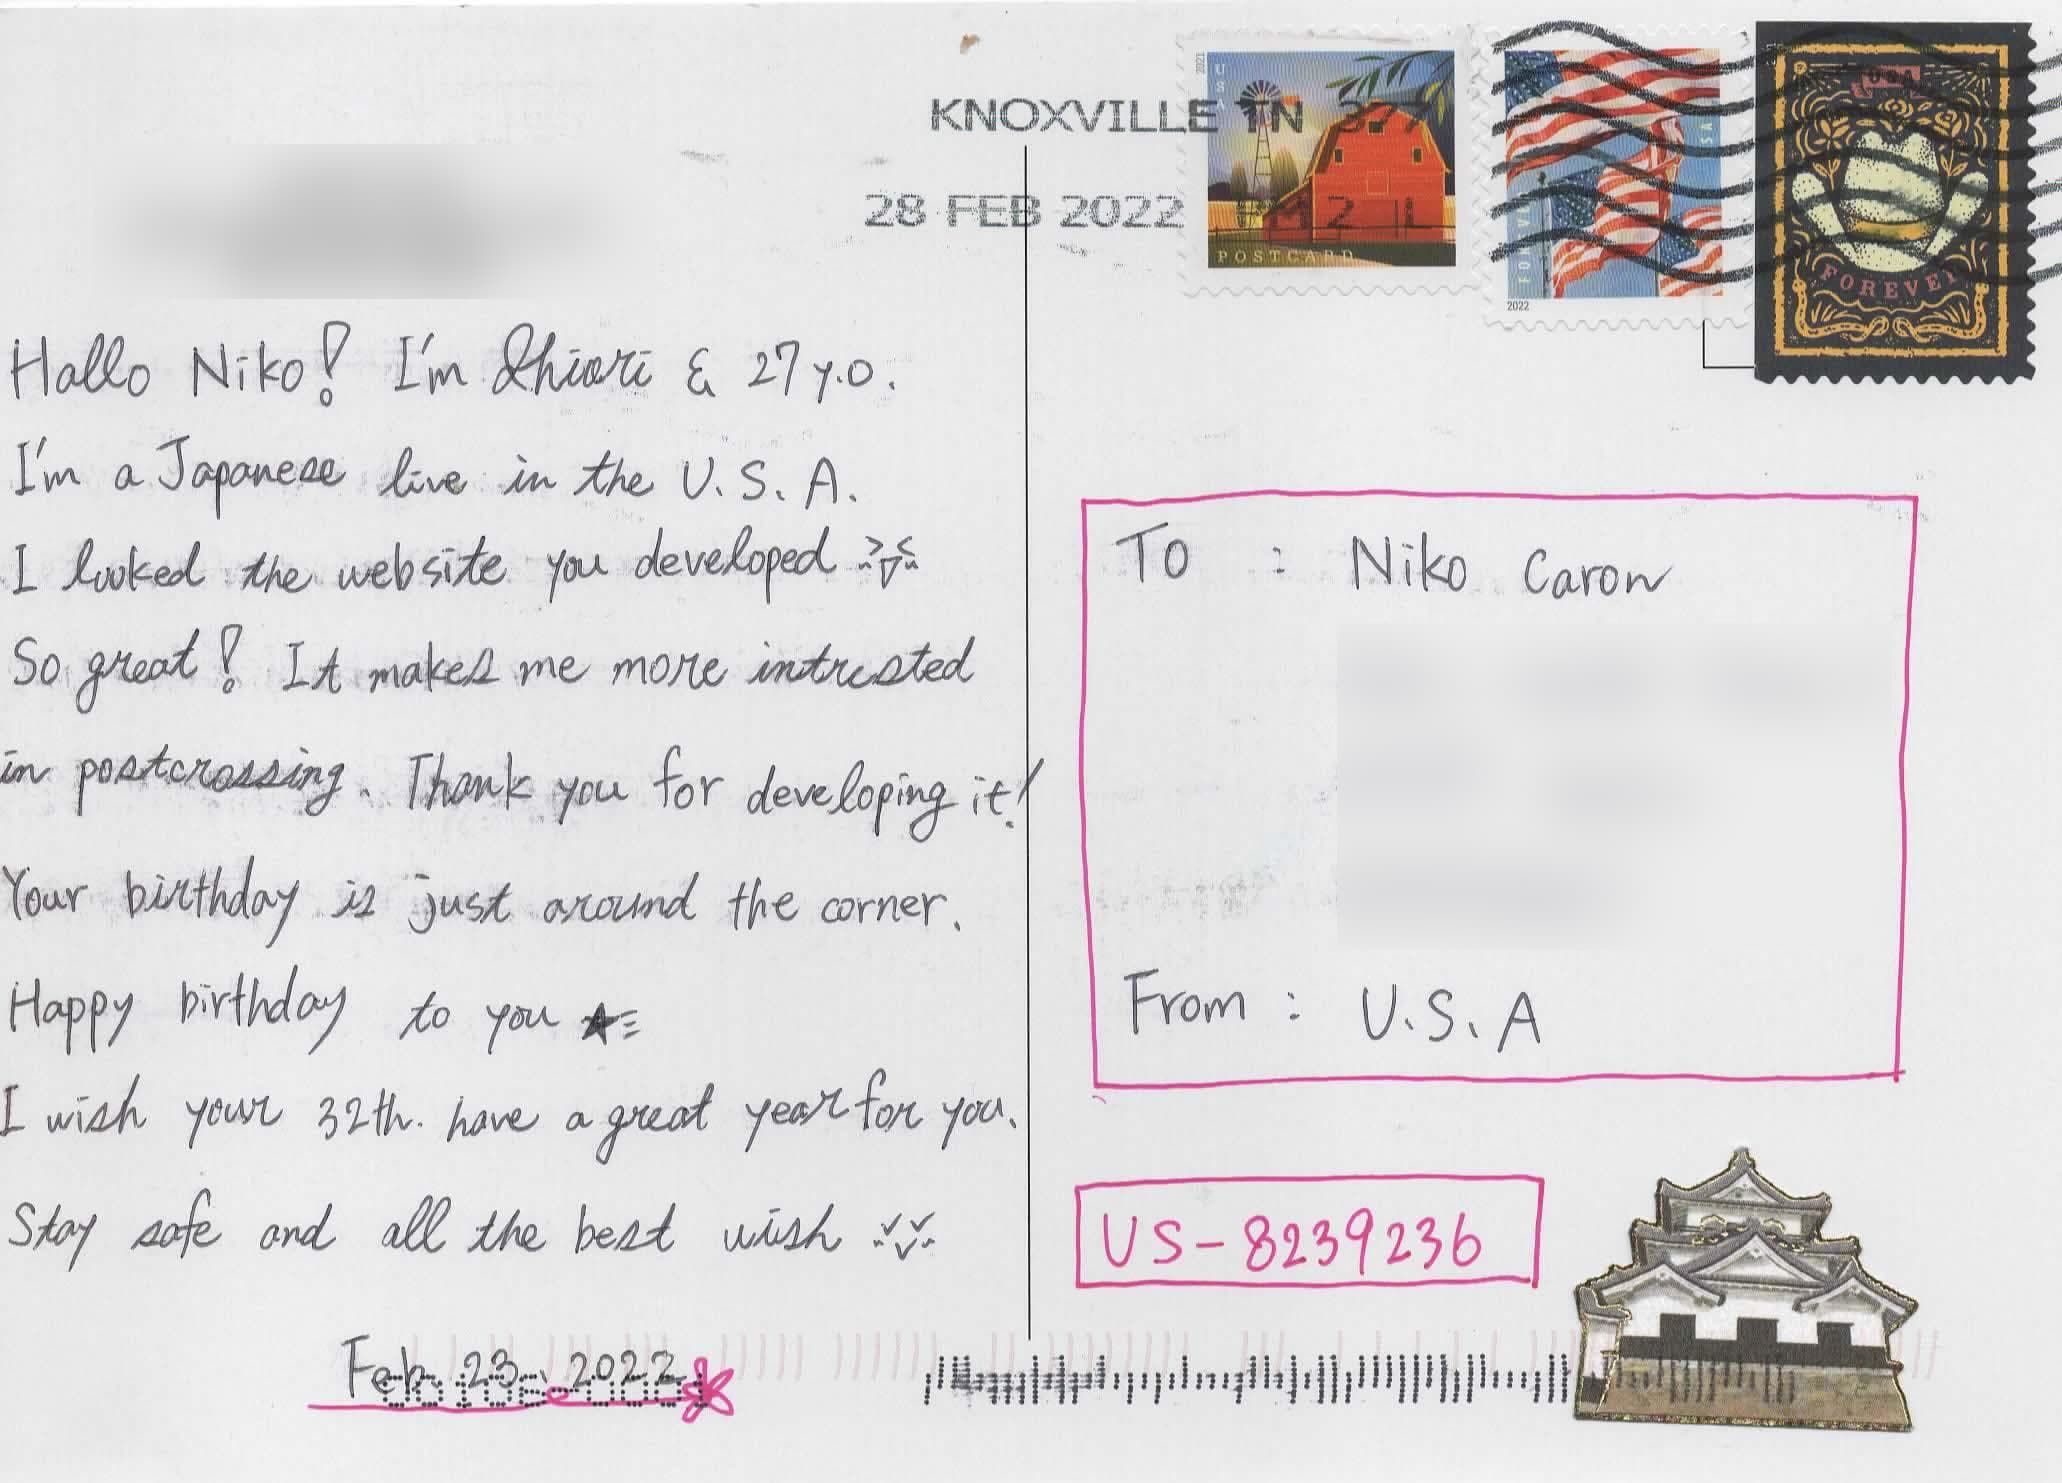 KNOXVILLE TN 377
28 FEB 2022 PM 2 L
2021
USA
POSTCARD
FOREVER
USA
2022
USA
FOREVER
Hallo Niko! I'm Shiori & 27 y.o.
I'm a Japanese live in the U.S.A.
I looked the website you developed
So great! It makes me more intrested
in postcrossing. Thank you for developing it!
Your birthday is just around the corner.
Happy birthday to you ★
I wish your 32th. have a great year for you.
Stay safe and all the best wish
Feb 23, 2022
TO : Niko Caron
From : U.S.A
US-8239236